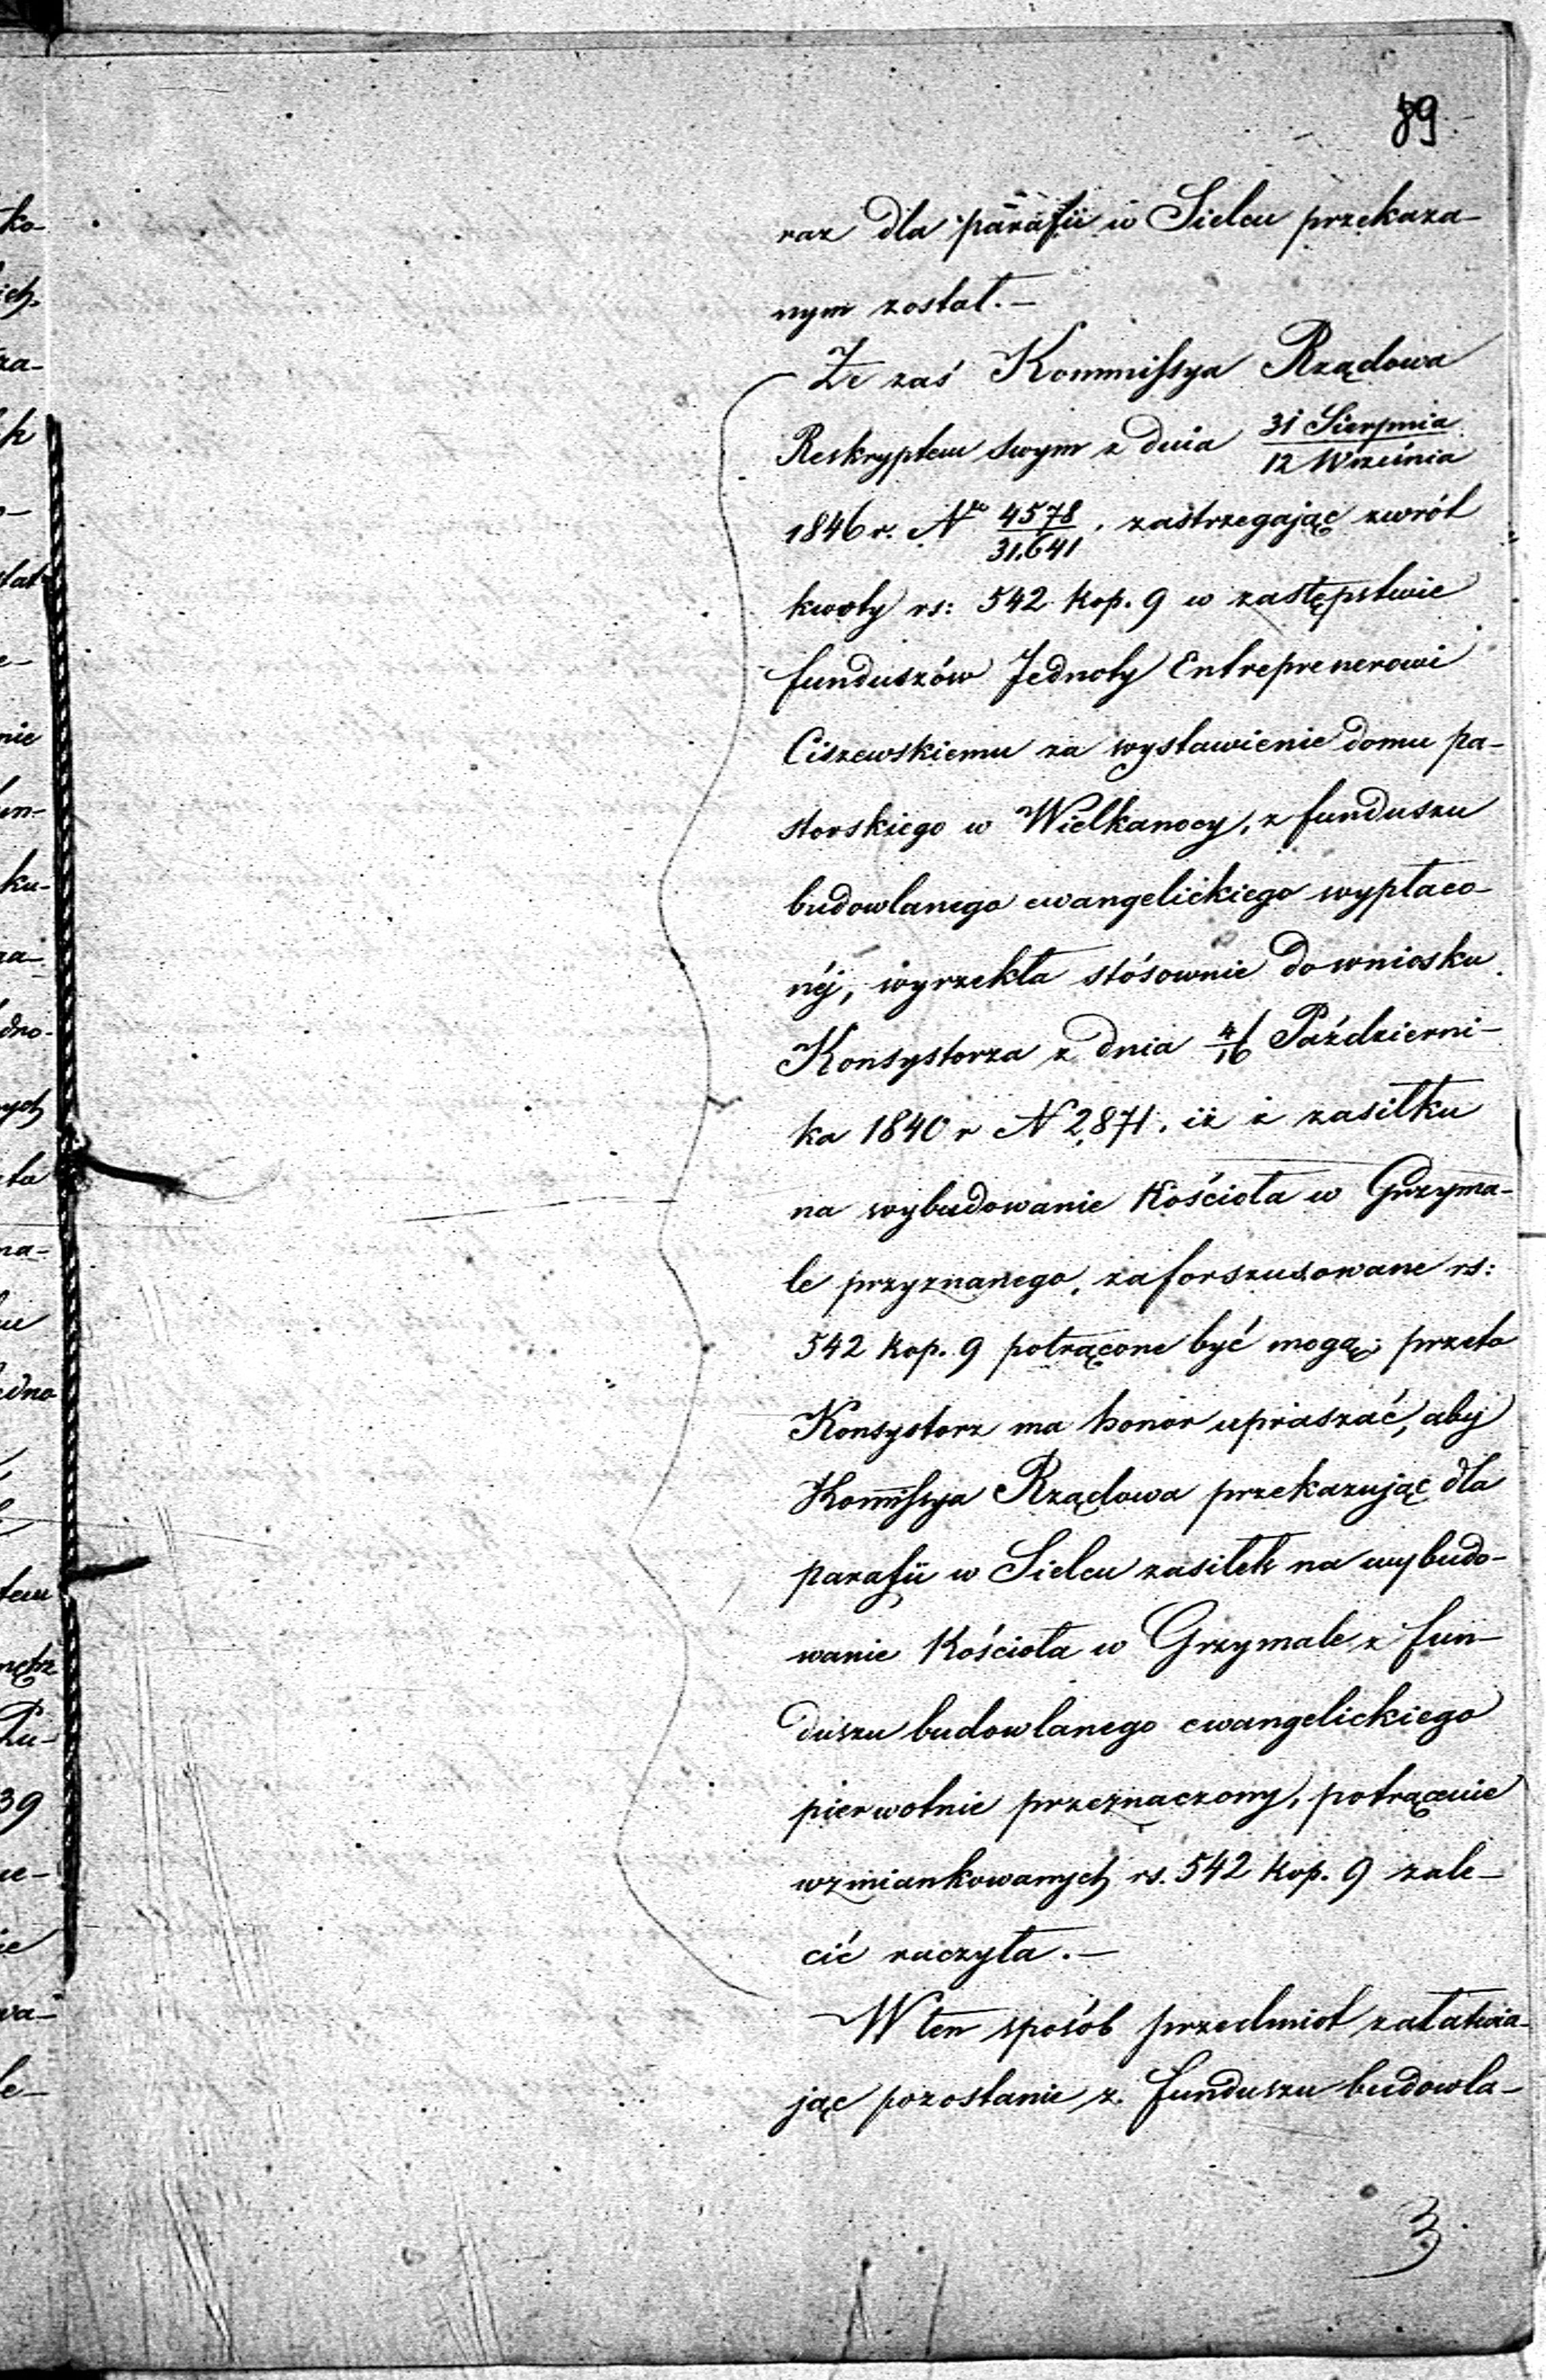 89
raz dla parafii w Sielcu przekaza-
nym został.-
Że zaś Kommissya Rządowa
Reskryptem swym z dnia 31 Sierpnia / 12 Września
1846 r. No 4578 / 31.641. zastrzegając zwrót
kwoty rs: 542 kop. 9 w zastępstwie
funduszów Jednoty Entreprenerowi
Ciszewskiemu za wystawienie domu pa-
storskiego w Wielkanocy, z funduszu
budowlanego ewangelickiego wypłaco-
néj, wyrzekła stósownie do wniosku
Konsystorza z dnia 4/16 Październi-
ka 1840 r N 2,871. iż z zasiłku
na wybudowanie Kościoła w Grzyma-
le przyznanego, zaforszusowane rs:
542 kop. 9 potrącone być mogą; przeto
Konsystorz ma honor upraszać, aby
Komissya Rządowa przekazując dla
parafii w Sielcu zasiłek na wybudo-
wanie Kościoła w Grzymale z fun-
duszu budowlanego ewangelickiego
pierwotnie przeznaczony, potrącenie
wzmiankowanych rs. 542 kop. 9 zale-
cić raczyła.-
W ten sposób przedmiot załatwia-
jąc pozostanie z funduszu budowla-
3